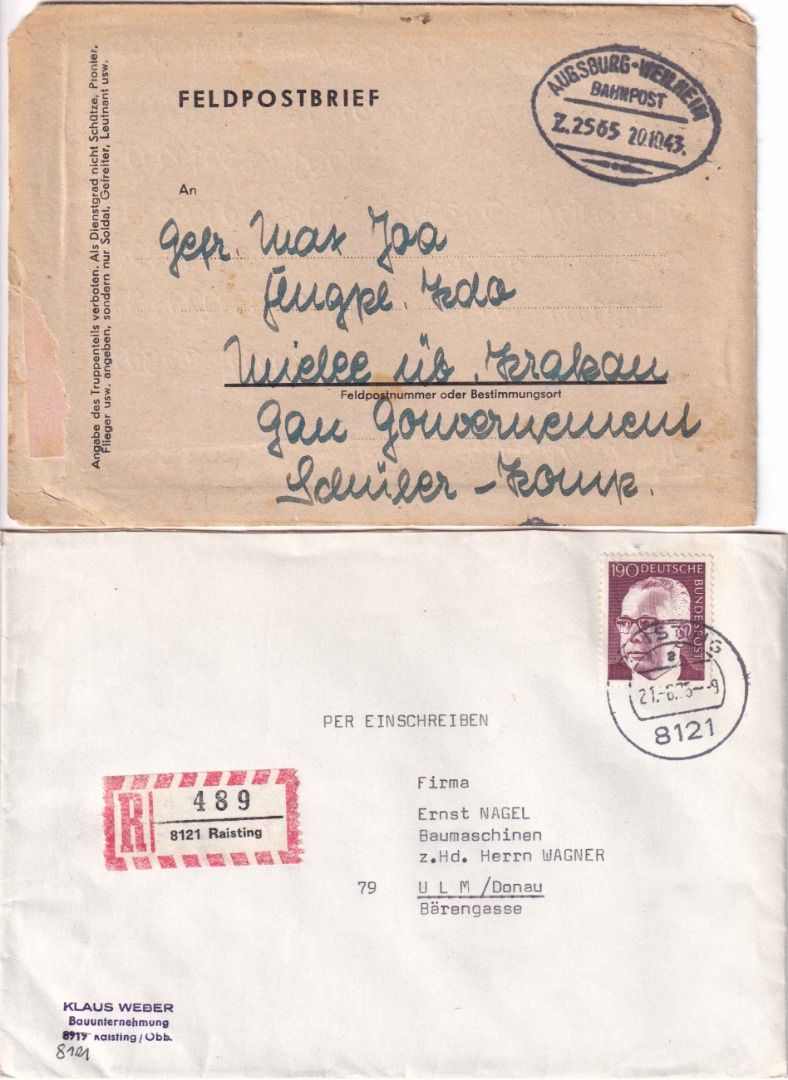 Angabe des Truppenteils verboten. Als Dienstgrad nicht Schütze, Pionier,
Flieger usw. angeben, sondern nur Soldat, Gefreiter, Leutnant usw.
FELDPOSTBRIEF
AUGSBURG-WEILHEIM
BAHNPOST
Z.2565 20.10.43.
An
Gefr. Max Joa
Flugpl. Kdo
Mielec üb. Krakau
Feldpostnummer oder Bestimmungsort
Gau Gouvernement
Schüler-Komp.
190 DEUTSCHE
BUNDESPOST
a
21.-8.75--9
8121
PER EINSCHREIBEN
R
489
8121 Raisting
Firma
Ernst NAGEL
Baumaschinen
z.Hd. Herrn WAGNER
79 ULM/Donau
Bärengasse
KLAUS WEBER
Bauunternehmung
8919 Raisting/Obb.
8121